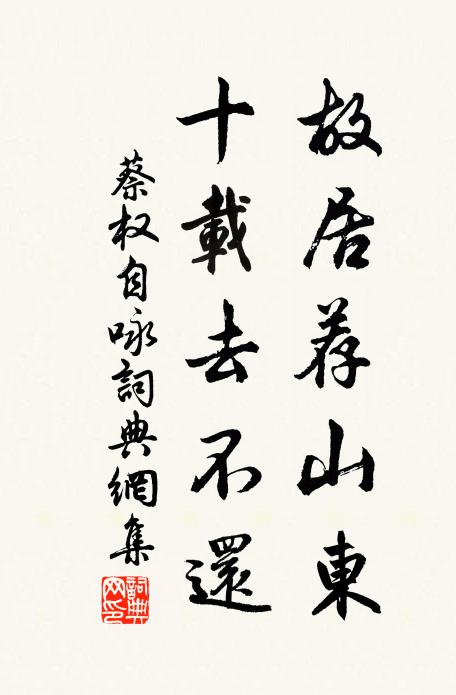 故居荐山東
十載去不還
蔡权自咏詞典網集
詞典網印